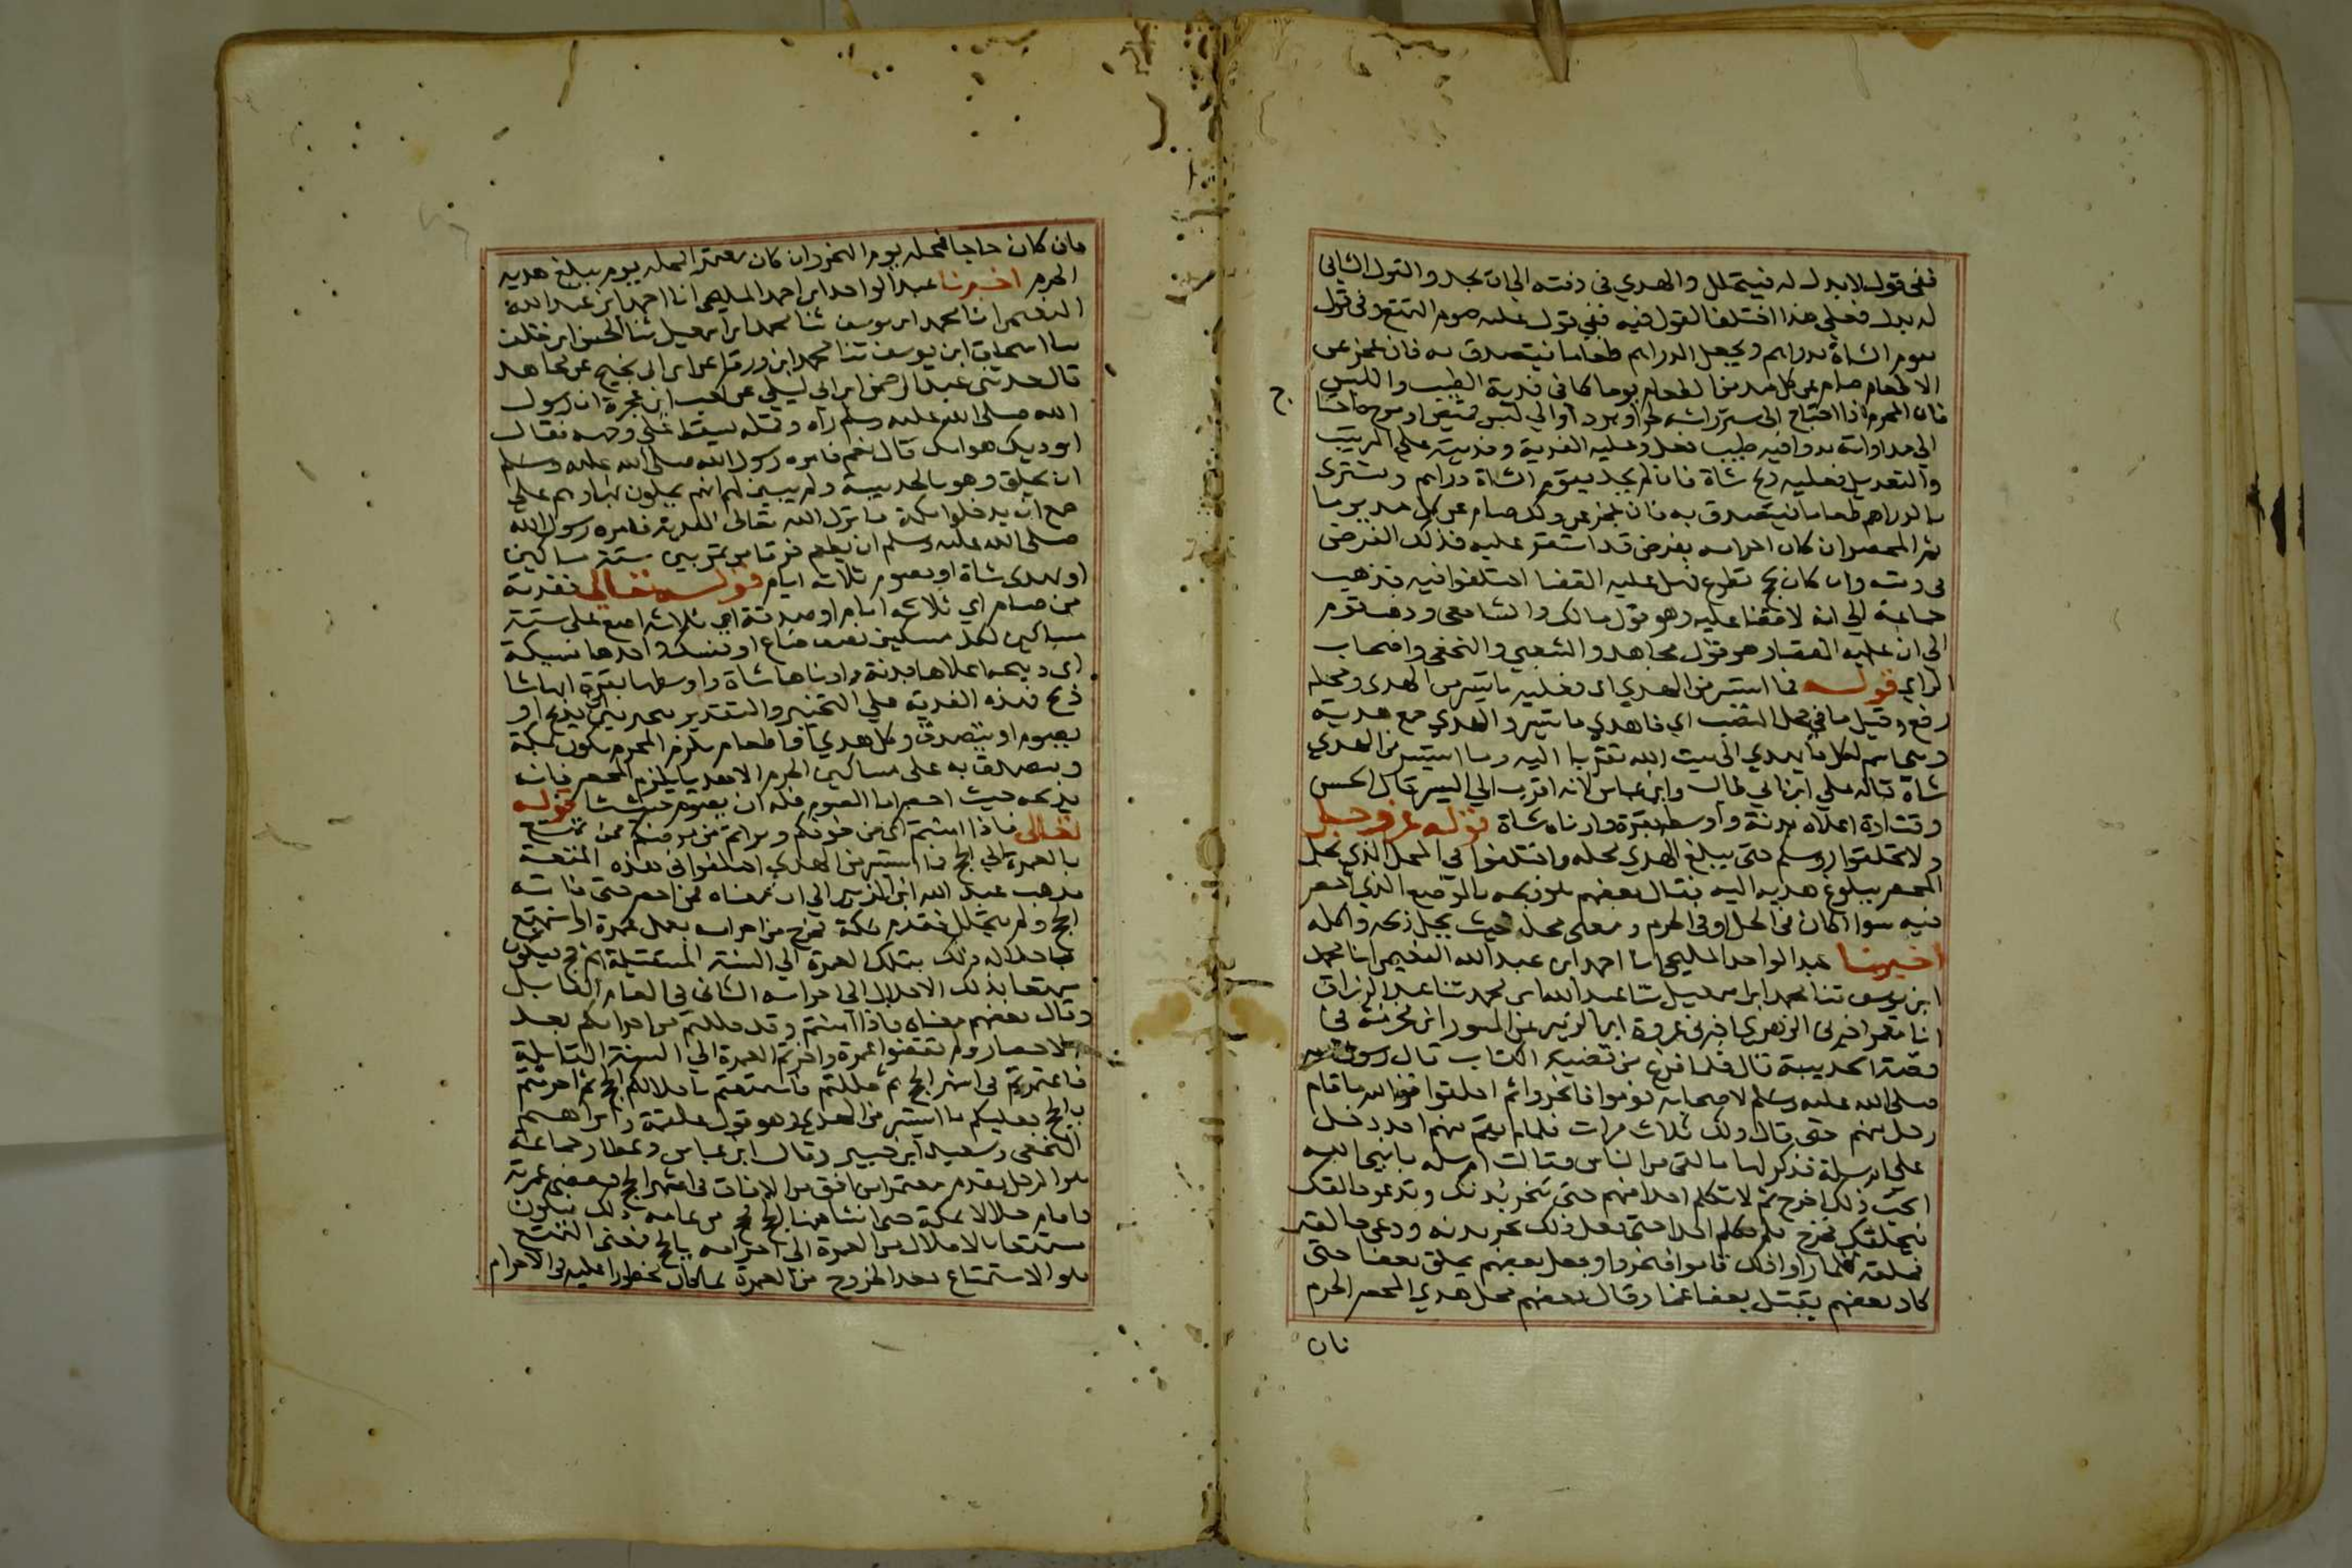 ففي قول لا بدل له فيتحلل والهدي في ذمته الى ان يجد والقول الثاني
له بدل فعلي هذا اختلفا لقول فيه ففي قول عليه صوم التمتع وفي قول
يقوم الشاة بدراهم ويجعل الدراهم طعاما فيتصدق به فان عجز عن
الاطعام صام عن كل مد من الطعام يوما كما في فدية الطيب واللبس
فان المحرم اذا احتاج الى ستر راسه لحر او برد او الي لبس قميص او مرض فاحتا
ج
الي مداواته بدوا فيه طيب فعل وعليه الفدية وفديته علي الترتيب
والتعديل فعليه ذبح شاة فان لم يجد يقوم الشاة دراهم ويشتري
بالدراهم طعاما فيتصدق به فان عجز عن ذلك صام عن كل مد يوما
ثم المحصر ان كان احرامه بفرض قد استقر عليه فذلك الفرض
في ذمته وان كان بحج تطوع فهل عليه القضا اختلفوا فيه فذهب
جماعة الي انه لا قضا عليه وهو قول مالك والشافعي وذهب قوم
الى ان عليه القضا وهو قول مجاهد والشعبي والنخعي واصحاب
الراي قوله فما استيسر من الهدي اي فعليه ما تيسر من الهدى ومحله
رفع وقيل ما في محل النصب اي فاهدي ما تيسر والهدي جمع هدية
وهي اسم لكل ما يهدي الى بيت الله تقربا اليه وما استيسر من الهدي
شاة قاله علي ابن ابي طالب وابن عباس لانه اقرب الي اليسر وقال الحسن
وقتادة اعلاه بدنة واوسطه بقرة وادناه شاة قوله عز وجل
ولا تحلقوا روسكم حتى يبلغ الهدي محله واختلفوا في المحل الذي يحل
المحصر ببلوغ هديه اليه فقال بعضهم هو ذبحه بالموضع الذي احصر
فيه سوا كان في الحل او في الحرم ومعنى محله حيث يحل ذبحه واكله
اخبرنا عبد الواحد المليحي انا احمد ابن عبد الله النعيمي انا محمد
ابن يوسف ثنا محمد ابن اسمعيل ثنا عبد الله ابن محمد ثنا عبد الرزاق
انا معمر اخبرني الزهري اخبرني عروة ابن الزبير عن المسور ابن مخرمة في
قصة الحديبية قال فلما فرغ من قضية الكتاب قال رسول الله
صلى الله عليه وسلم لاصحابه قوموا فانحروا ثم احلقوا فوالله ما قام
رجل منهم حتى قال ذلك ثلاث مرات فلما لم يقم منهم احد دخل
على ام سلمة فذكر لها ما لقي من الناس فقالت ام سلمة يا نبي الله
اتحب ذلك اخرج ثم لا تكلم احدا منهم حتى تنحر بدنك وتدعو حالقك
فيحلقك فخرج فلم يكلم احدا حتى فعل ذلك نحر بدنه ودعى حالقه
فحلقه فلما راوا ذلك قاموا فنحروا وجعل بعضهم يحلق بعضا حتى
كاد بعضهم يقتل بعضا غما وقال بعضهم محل هدي المحصر الحرم
فان
فان كان حاجا فمحله يوم النحر وان كان معتمرا فمحله يوم يبلغ هديه
الحرم اخبرنا عبد الواحد ابن احمد المليحي انا احمد ابن عبد الله
النعيمي انا محمد ابن يوسف ثنا محمد ابن اسمعيل ثنا الحسن ابن خلف
ثنا اسحاق ابن يوسف ثنا محمد ابن ورقا عن ابن ابي نجيح عن مجاهد
قال حدثني عبد الرحمن ابن ابي ليلى عن كعب ابن عجرة ان رسول
الله صلى الله عليه وسلم رآه وقمله يسقط على وجهه فقال
ايوذيك هوامك قال نعم فامره رسول الله صلى الله عليه وسلم
ان يحلق وهو بالحديبية ولم يبين لهم انهم يحلون بها وهم على
طمع ان يدخلوا مكة فانزل الله تعالى الفدية فامره رسول الله
صلى الله عليه وسلم ان يطعم فرقا من تمر بين ستة مساكين
او يهدى شاة او يصوم ثلاثة ايام قوله تعالى ففدية
من صيام اي ثلاثة ايام او صدقة اي ثلاثة اصع على ستة
مساكين لكل مسكين نصف صاع او نسك واحدها نسيكة
اى ذبيحه اعلاها بدنة وادناها شاة واوسطها بقرة ايها شا
ذبح فهذه الفدية على التخيير والتقدير يتخير بين ان يذبح او
يصوم او يتصدق وكل هدي او طعام يلزم المحرم يكون بمكة
ويتصدق به على مساكين الحرم الا هديا يلزم المحصر فانه
يذبحه حيث احصر اما الصوم فله ان يصوم حيث شا قوله
تعالى فاذا امنتم اى من خوفكم وبراتم من مرضكم فمن تمتع
بالعمرة الي الحج فما استيسر من الهدي اختلفوا في هذه المتعة
فذهب عبد الله ابن الزبير الي ان معناه فمن احصر حتى فاته
الحج ولم يتحلل فقدم مكة فخرج من احرامه بعمل عمرة واستمتع
باحلاله ذلك بتلك العمرة الي السنة المستقبلة ثم حج فيكون
متمتعا بذلك الاحلال الى احرامه الثاني في العام القابل
وقال بعضهم معناه فاذا امنتم وقد حللتم من احرامكم بعد
الاحصار ولم تقضوا عمرة واخرتم العمرة الي السنة القابلة
فاعتمرتم في اشهر الحج ثم حللتم فاستمتعتم باحلالكم الى الحج ثم احرمتم
بالحج فعليكم ما استيسر من الهدي وهو قول علقمة وابراهيم
النخعي وسعيد ابن جبير وقال ابن عباس وعطا وجماعة
هو الرجل يقدم معتمرا من افق من الافاق في اشهر الحج فقضى عمرته
فاقام حلالا بمكة حتى انشا منها الحج فحج من عامه ذلك فيكون
مستمتعا بالاحلال من العمرة الى احرامه بالحج فمعنى التمتع
هو الاستمتاع بعد الخروج من العمرة بما كان محظورا عليه في الاحرام